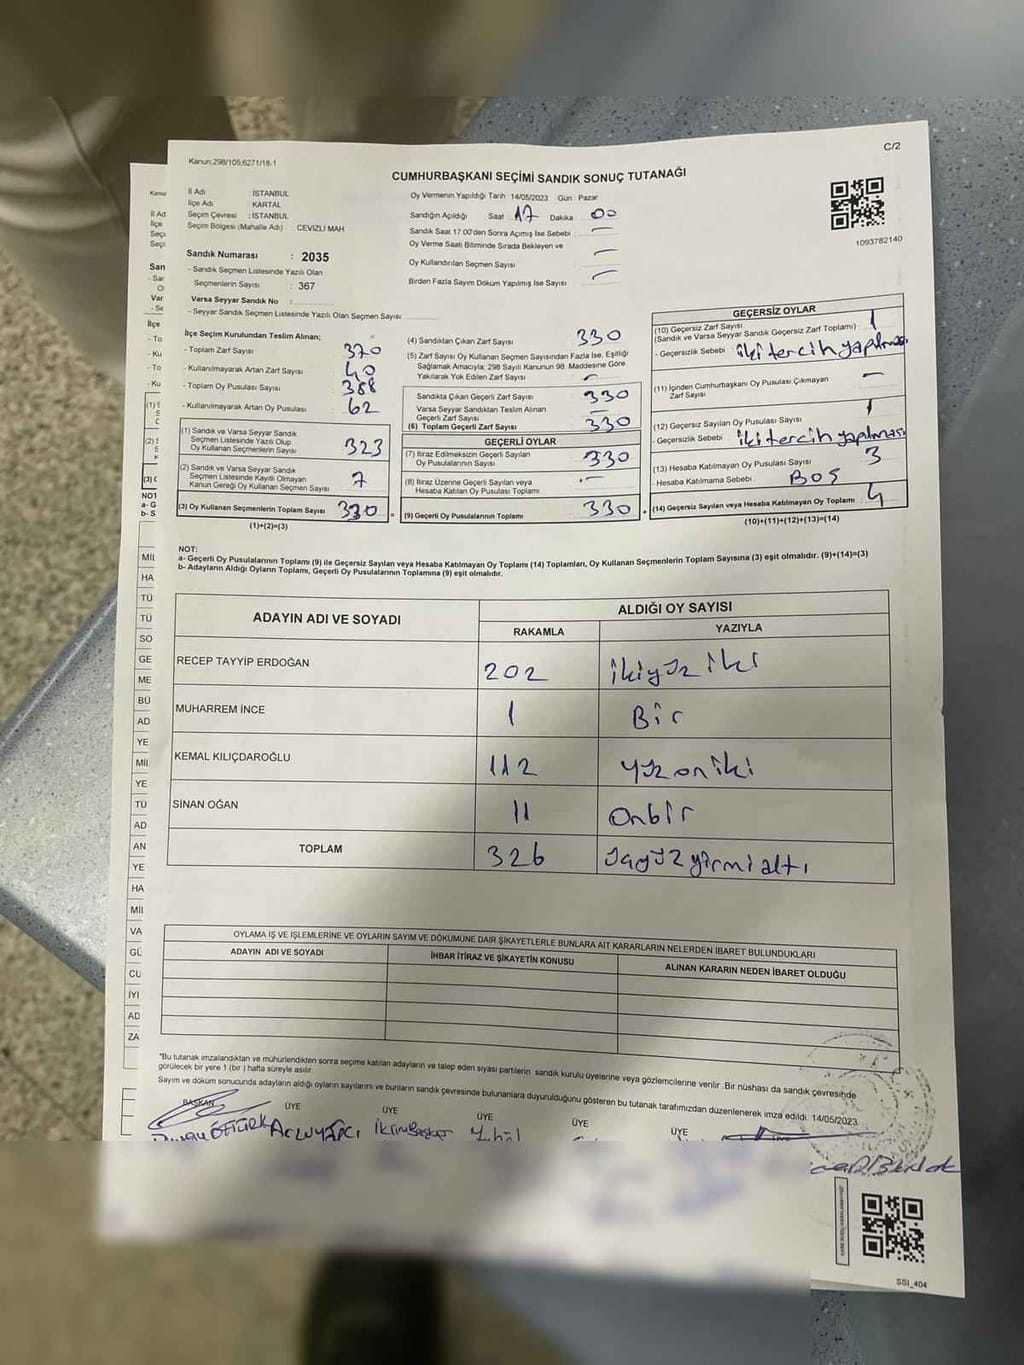 Kanun;298/105;6271/18-1
C/2
CUMHURBAŞKANI SEÇİMİ SANDIK SONUÇ TUTANAĞI
İl Adı : İSTANBUL
İlçe Adı : KARTAL
Seçim Çevresi : İSTANBUL
Seçim Bölgesi (Mahalle Adı) CEVİZLİ MAH
Sandık Numarası : 2035
- Sandık Seçmen Listesinde Yazılı Olan
Seçmenlerin Sayısı : 367
Varsa Seyyar Sandık No :
- Seyyar Sandık Seçmen Listesinde Yazılı Olan Seçmen Sayısı
Oy Vermenin Yapıldığı Tarih : 14/05/2023 Gün : Pazar
Sandığın Açıldığı Saat 17 Dakika 00
Sandık Saat 17.00'den Sonra Açılmış İse Sebebi : —
Oy Verme Saati Bitiminde Sırada Bekleyen ve
Oy Kullandırılan Seçmen Sayısı —
Birden Fazla Sayım Döküm Yapılmış İse Sayısı —
1093782140
İlçe Seçim Kurulundan Teslim Alınan;
- Toplam Zarf Sayısı 370
- Kullanılmayarak Artan Zarf Sayısı 40
- Toplam Oy Pusulası Sayısı 388
- Kullanılmayarak Artan Oy Pusulası 62
(1) Sandık ve Varsa Seyyar Sandık
Seçmen Listesinde Yazılı Olup
Oy Kullanan Seçmenlerin Sayısı 323
(2) Sandık ve Varsa Seyyar Sandık
Seçmen Listesinde Kayıtlı Olmayan
Kanun Gereği Oy Kullanan Seçmen Sayısı 7
(3) Oy Kullanan Seçmenlerin Toplam Sayısı 330
(1)+(2)=(3)
(4) Sandıktan Çıkan Zarf Sayısı 330
(5) Zarf Sayısı Oy Kullanan Seçmen Sayısından Fazla İse, Eşitliği
Sağlamak Amacıyla; 298 Sayılı Kanunun 98. Maddesine Göre
Yakılarak Yok Edilen Zarf Sayısı —
Sandıkta Çıkan Geçerli Zarf Sayısı 330
Varsa Seyyar Sandıktan Teslim Alınan
Geçerli Zarf Sayısı —
(6) Toplam Geçerli Zarf Sayısı 330
GEÇERLİ OYLAR
(7) İtiraz Edilmeksizin Geçerli Sayılan
Oy Pusulalarının Sayısı 330
(8) İtiraz Üzerine Geçerli Sayılan veya
Hesaba Katılan Oy Pusulası Toplamı —
(9) Geçerli Oy Pusulalarının Toplamı 330
GEÇERSİZ OYLAR
(10) Geçersiz Zarf Sayısı
(Sandık ve Varsa Seyyar Sandık Geçersiz Zarf Toplamı) : 1
- Geçersizlik Sebebi : iki tercih yapılması
(11) İçinden Cumhurbaşkanı Oy Pusulası Çıkmayan
Zarf Sayısı —
(12) Geçersiz Sayılan Oy Pusulası Sayısı 1
- Geçersizlik Sebebi iki tercih yapılması
(13) Hesaba Katılmayan Oy Pusulası Sayısı 3
- Hesaba Katılmama Sebebi : BOŞ
(14) Geçersiz Sayılan veya Hesaba Katılmayan Oy Toplamı 4
(10)+(11)+(12)+(13)=(14)
NOT:
a- Geçerli Oy Pusulalarının Toplamı (9) ile Geçersiz Sayılan veya Hesaba Katılmayan Oy Toplamı (14) Toplamları, Oy Kullanan Seçmenlerin Toplam Sayısına (3) eşit olmalıdır. (9)+(14)=(3)
b- Adayların Aldığı Oyların Toplamı, Geçerli Oy Pusulalarının Toplamına (9) eşit olmalıdır.
ADAYIN ADI VE SOYADI
ALDIĞI OY SAYISI
RAKAMLA YAZIYLA
RECEP TAYYİP ERDOĞAN 202 ikiyüz iki
MUHARREM İNCE 1 Bir
KEMAL KILIÇDAROĞLU 112 yüz oniki
SİNAN OĞAN 11 Onbir
TOPLAM 326 üçyüz yirmialtı
OYLAMA İŞ VE İŞLEMLERİNE VE OYLARIN SAYIM VE DÖKÜMÜNE DAİR ŞİKAYETLERLE BUNLARA AİT KARARLARIN NELERDEN İBARET BULUNDUKLARI
ADAYIN ADI VE SOYADI İHBAR İTİRAZ VE ŞİKAYETİN KONUSU ALINAN KARARIN NEDEN İBARET OLDUĞU
*Bu tutanak imzalandıktan ve mühürlendikten sonra seçime katılan adayların ve talep eden siyasi partilerin sandık kurulu üyelerine veya gözlemcilerine verilir. Bir nüshası da sandık çevresinde
görülecek bir yere 1 (bir) hafta süreyle asılır.
Sayım ve döküm sonucunda adayların aldığı oyların sayılarını ve bunların sandık çevresinde bulunanlara duyurulduğunu gösteren bu tutanak tarafımızdan düzenlenerek imza edildi. 14/05/2023
BAŞKAN ÜYE ÜYE ÜYE ÜYE ÜYE
SSI_404